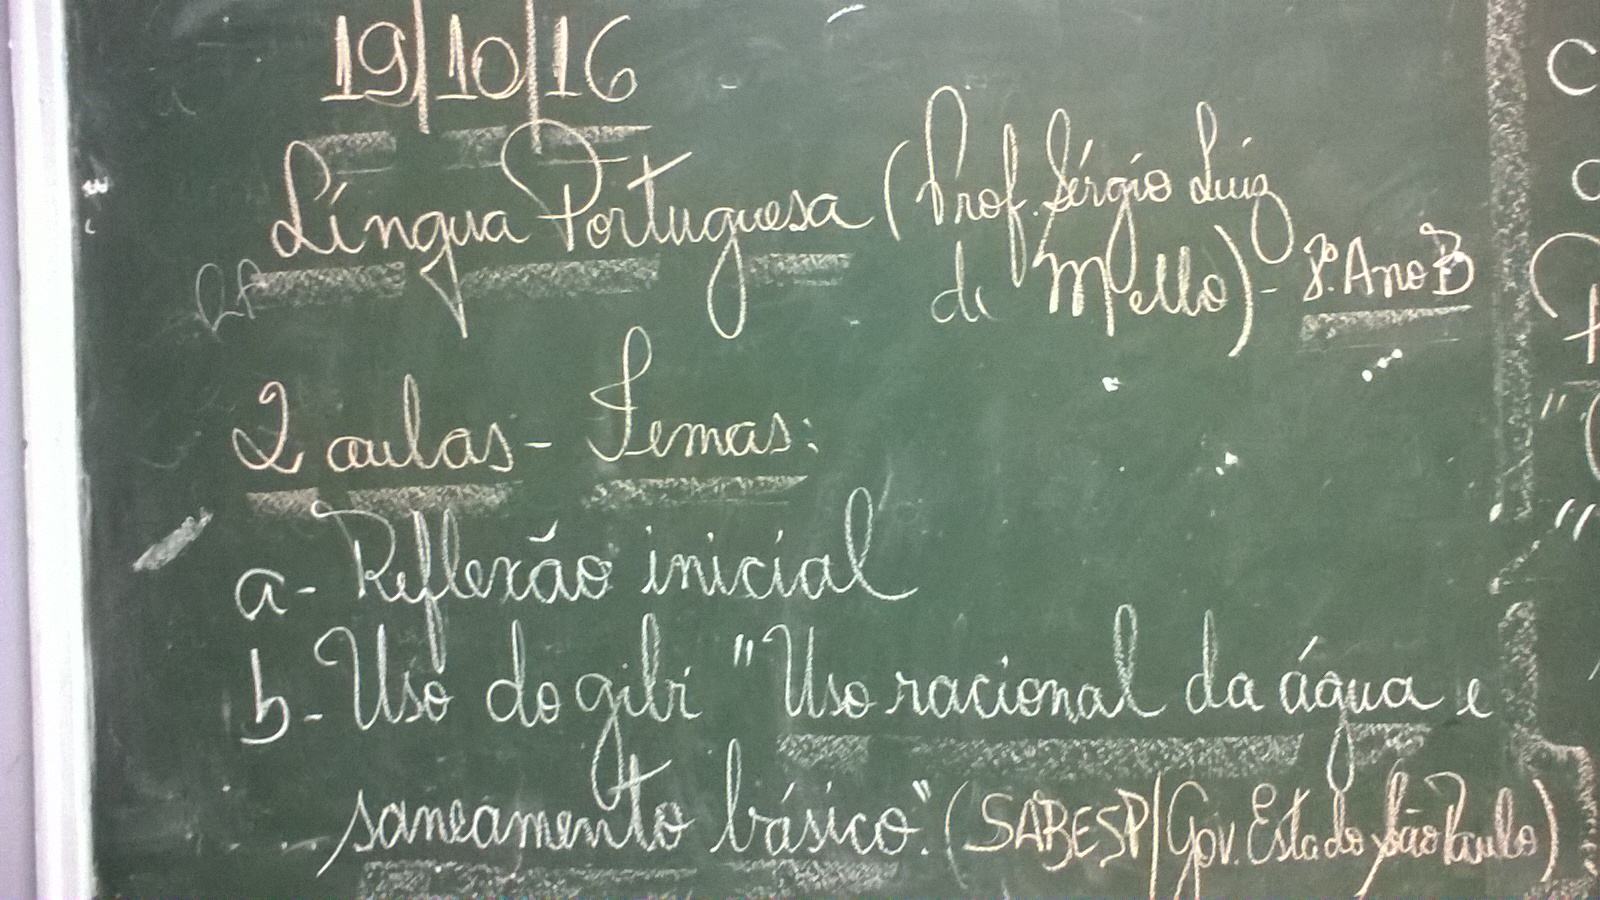 19/10/16
Língua Portuguesa (Prof. Sérgio Luiz
de Mello) - 8º. Ano B
2 aulas - Temas:
a - Reflexão inicial
b - Uso do gibi "Uso racional da água e
saneamento básico". (SABESP/Gov. Estado São Paulo)